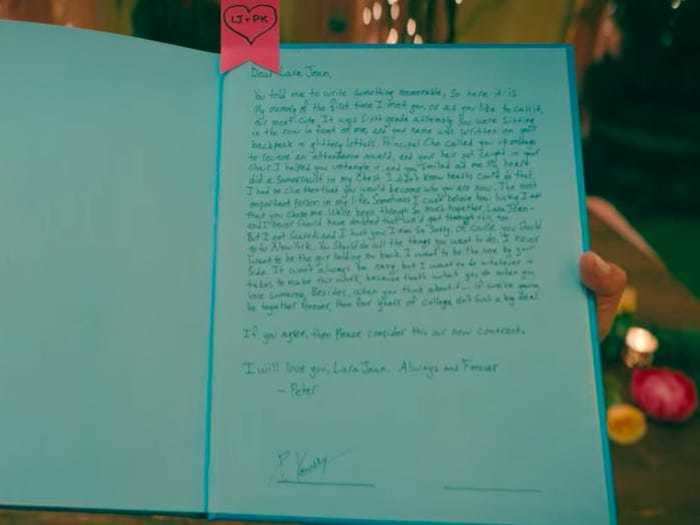 LJ + PK
Dear Lara Jean,
You told me to write something memorable, so here it is
My memory of the first time I met you, or as you like to call it,
our meet-cute. It was sixth grade assembly. You were sitting
in the row in front of me, and your name was written on your
backpack in glittery letters. Principal Cho called you up onstage
to receive an attendance award, and your hair got caught in your
chair. I helped you untangle it, and you smiled at me. My heart
did a somersault in my chest. I didn't know hearts could do that.
I had no clue then that you would become who you are now. The most
important person in my life. Sometimes I can't believe how lucky I am
that you chose me. We've been through so much together, Lara Jean-
and I never should have doubted that we'd get through this, too.
But I got scared and I hurt you. I am so sorry. Of course you should
go to New York. You should do all the things you want to do. I never
want to be the guy holding you back. I want to be the one by your
side. It won't always be easy but I want to do whatever it
takes to make this work, because that's what you do when you
love someone. Besides, when you think about it - if we're gonna
be together forever, then four years of college ain't such a big deal.
If you agree, then please consider this our new contract.
I will love you, Lara Jean. Always and Forever
- Peter
P. Kavinsky